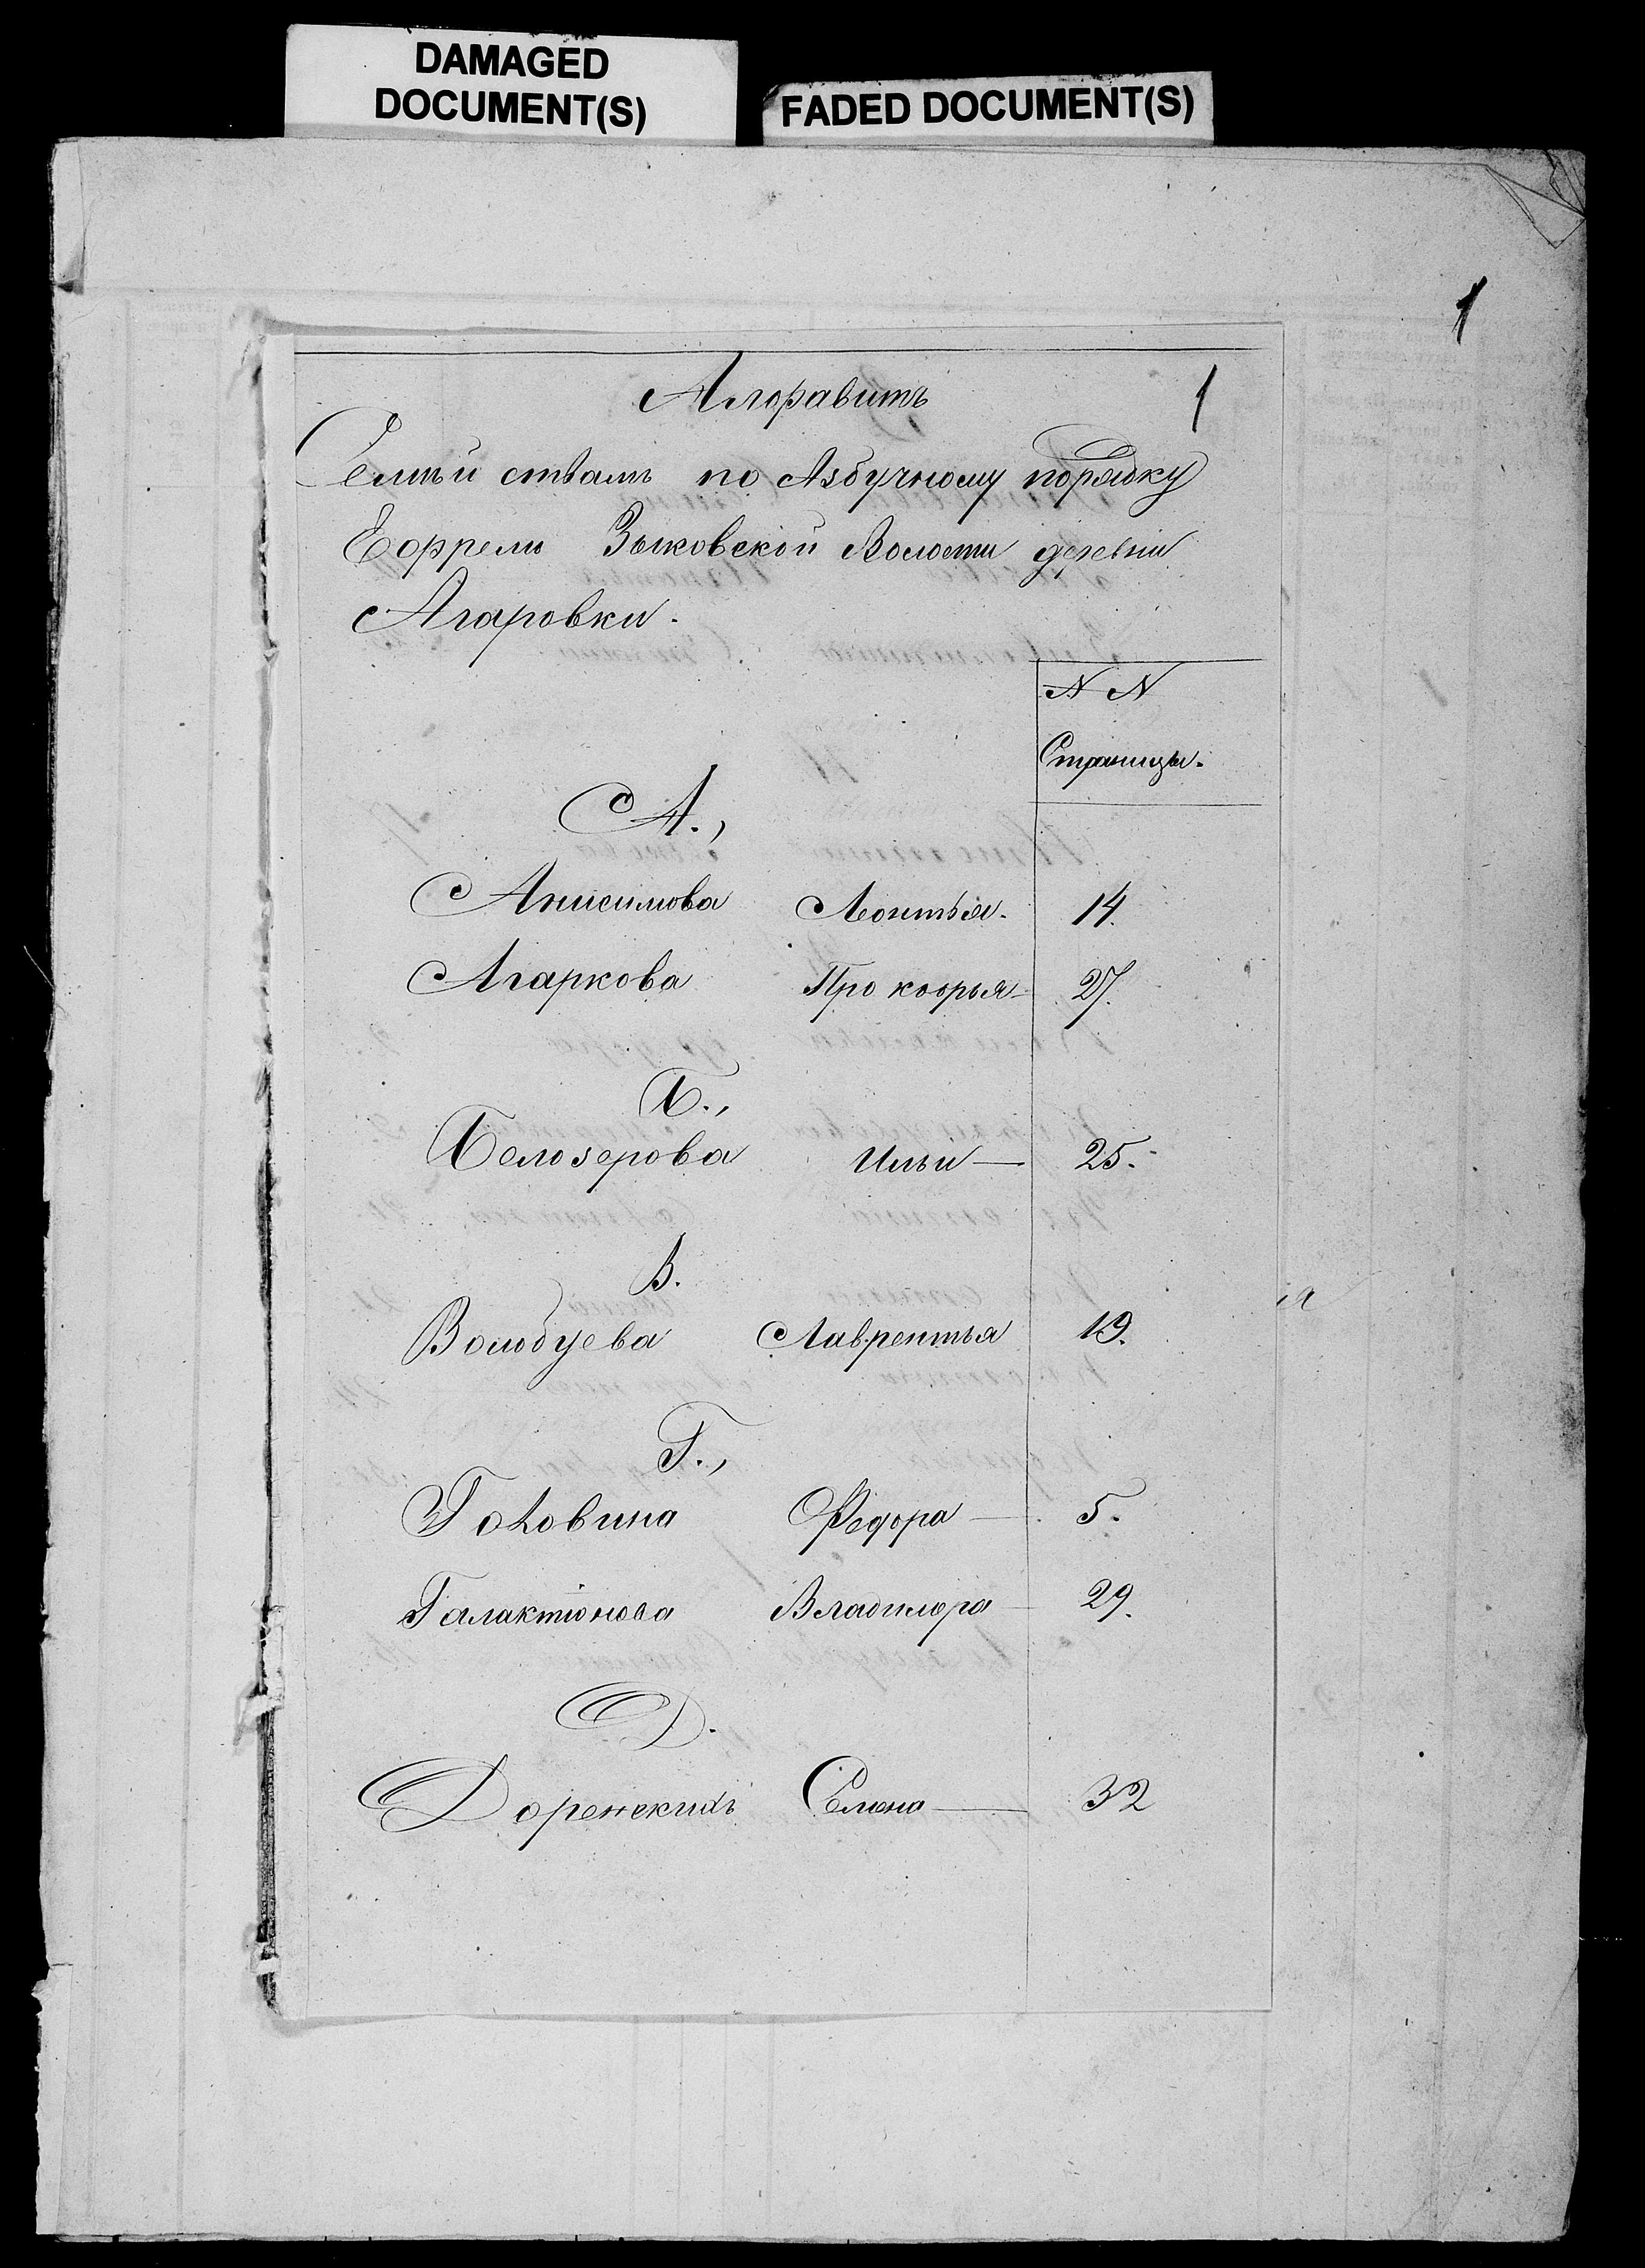 DAMAGED
DOCUMENT(S)
FADED DOCUMENT(S)
1
Алфавитъ
1
Семьи ствамъ по Азбучному порядку
Зыковской Волости деревни
Агаровки.
N N
Страницы.
А.,
Анисимова Леонтья. 14.
Агаркова Прокофья 27.
Б.,
Белозерова Ильи 25.
В.
Волобуева Лаврентья 19.
Г.,
Головина Федора 5.
Галактионова Владимера 29.
Д.
Доренскихъ 32